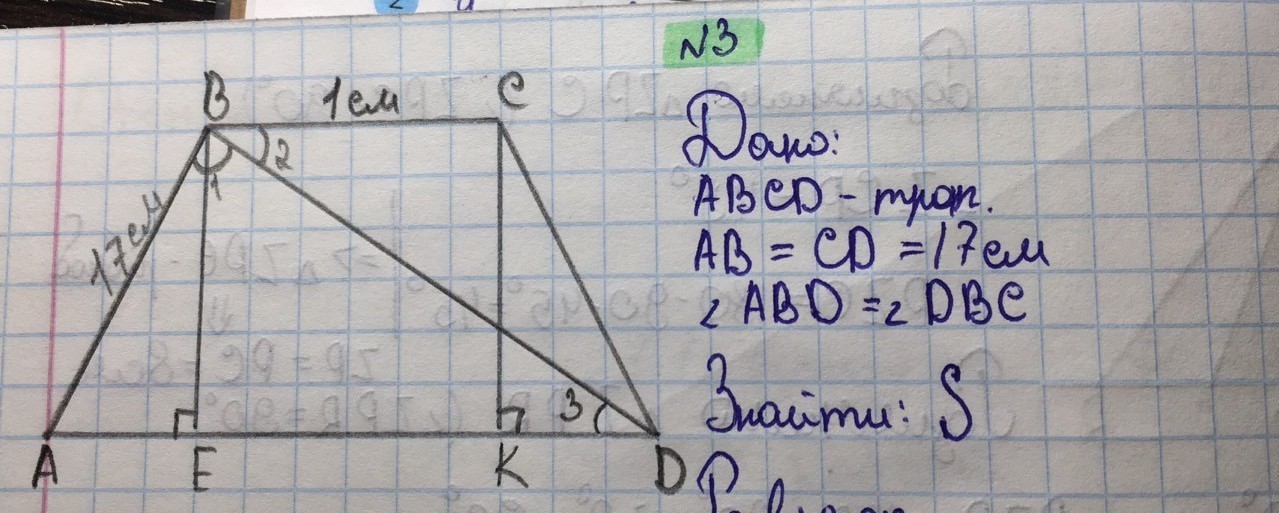 N3
B 1см C
2
1
17см
3
A E K D
Дано:
ABCD - трап.
AB = CD = 17см
∠ABD = ∠DBC
Знайти: S